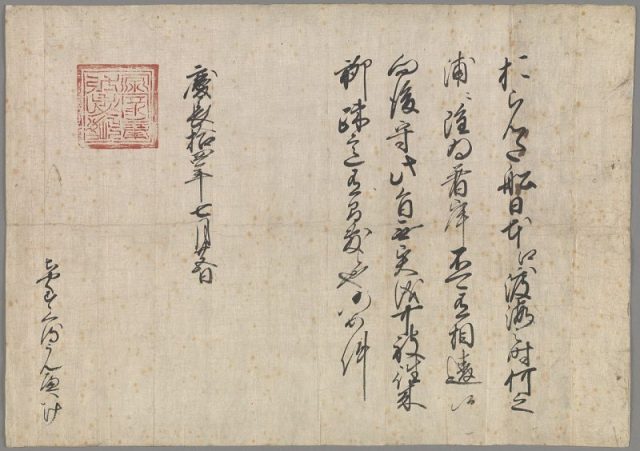 おらんた船日本江渡海之時何之
浦ニ雖為着岸不可有相違候
向後守此旨無異儀可被往来
聊疎意有間敷也仍如件
慶長拾四年七月廿五日